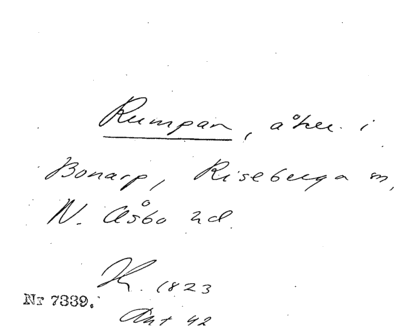 Rumpan, åker i
Bonarp, Riseberga sn,
N. Åsbo hd.
1823
Nr 7339.
Akt 42